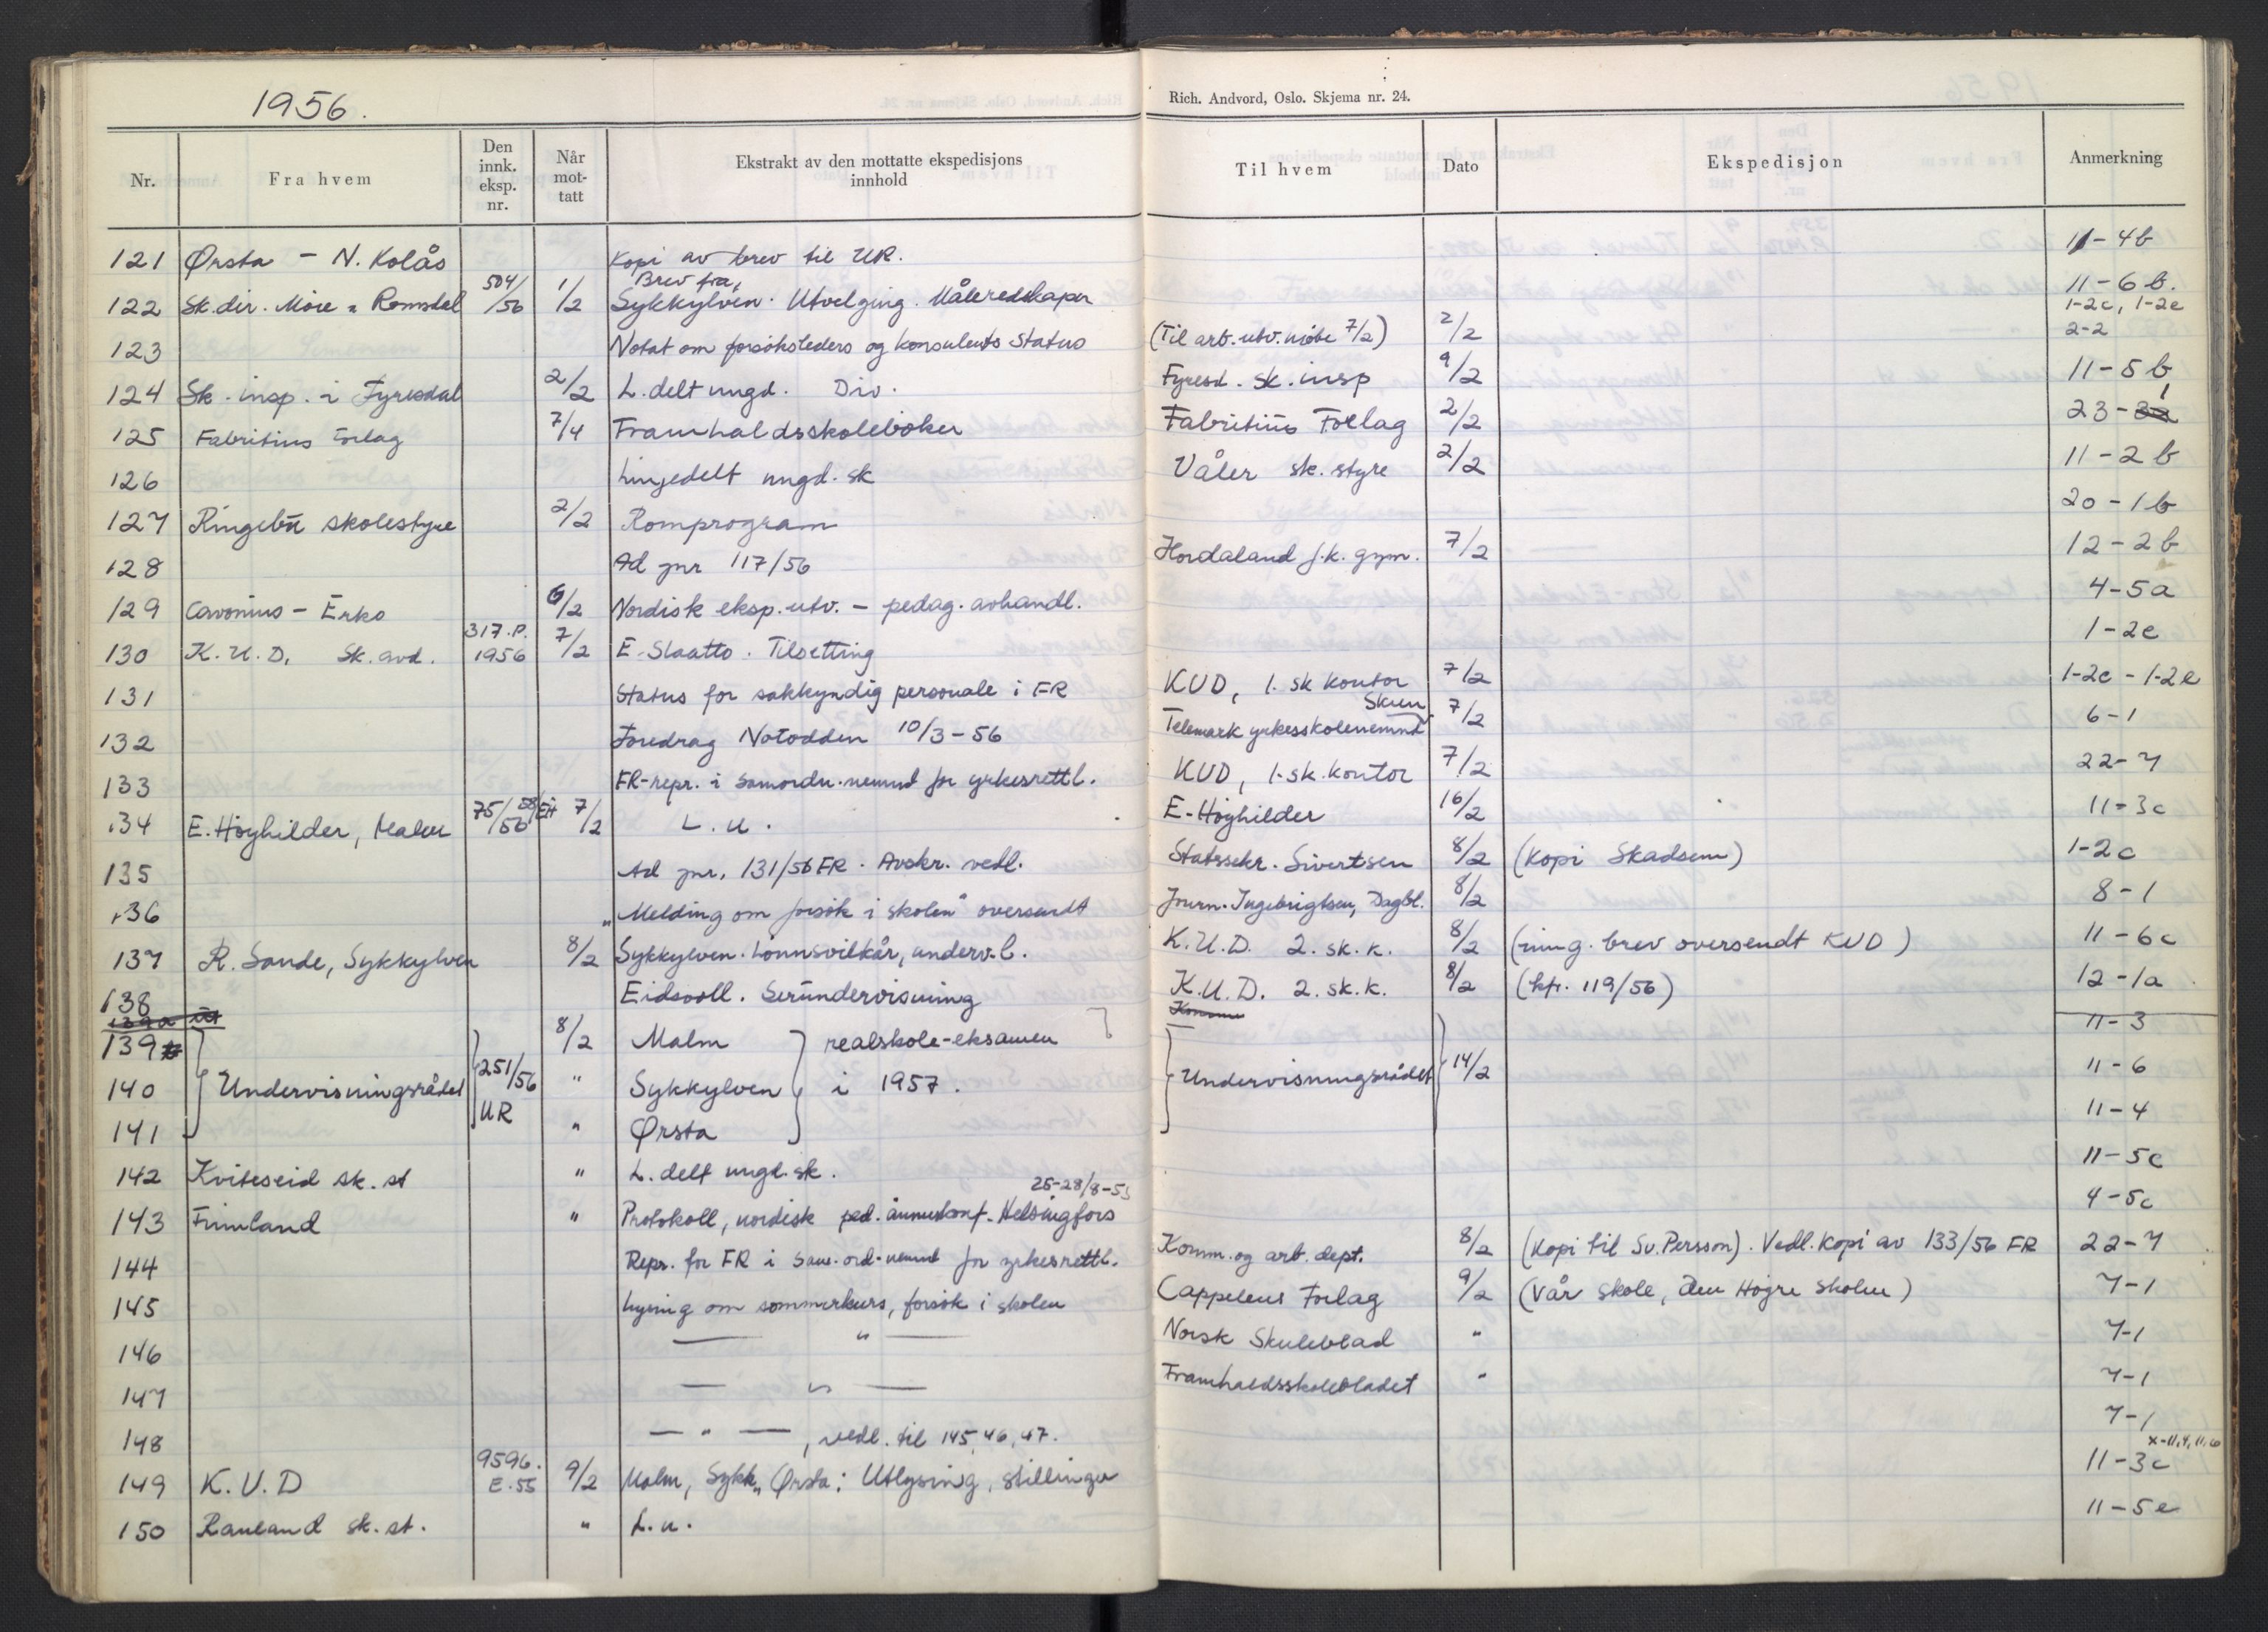 1956.
Rich. Andvord, Oslo. Skjema nr. 24.
Nr. Fra hvem Den innk. eksp. nr. Når mot- tatt Ekstrakt av den mottatte ekspedisjons innhold Til hvem Dato Ekspedisjon Anmerkning
121 Ørsta - N. Kolås Kopi av brev til UR. 11-4b
122 Sk.dir. Møre " Romsdal 504/56 1/2 Brev fra, Sykkylven. Utvelging. Måleredskaper 11-6b.
123 Notat om forsøksleders og konsulents status (Til arb.utv. møte 7/2) 2/2 1-2c, 1-2e 2-2
124 Sk. insp. i Fyresdal 2/2 L.delt ungd. Div. Fyresd. sk. insp 9/2 11-5b
125 Fabritius Forlag 7/4 Framhaldsskolebøker Fabritius Forlag 2/2 23-1
126 Linjedelt ungd. sk Våler sk. styre 2/2 11-2b
127 Ringebu skolestyre 2/2 Romprogram 20-1b
128 Ad jnr 117/56 Hordaland f.k. gym. 7/2 12-2b
129 Cavonius - Erko 6/2 Nordisk eksp.utv. - pedag. avhandl. 4-5a
130 K.U.D. Sk.avd. 317.P. 1956 7/2 E. Slaatto. Tilsetting 1-2e
131 Status for sakkyndig personale i FR KUD, 1. sk kontor 7/2 1-2c - 1-2e
132 Foredrag Notodden 10/3-56 Telemark yrkesskolenemnd Skien 7/2 6-1
133 FR-repr. i samordn.nemnd for yrkesrettl. KUD, 1. sk. kontor 7/2 22-7
134 E. Høyhilder, Malm 75/56 7/2 L.u. E. Høyhilder 16/2 11-3c
135 Ad jnr. 131/56 FR. Avskr. vedl. Statssekr. Sivertsen 8/2 (Kopi Skadsem) 1-2c
136 "Melding om forsøk i skolen" oversendt Journ. Ingebrigtsen, Dagbl. 8/2 8-1
137 R. Sande, Sykkylven 8/2 Sykkylven. Lønnsvilkår, underv.l. K.U.D. 2. sk. k. 8/2 (ning. brev oversendt KUD) 11-6c
138 Eidsvoll. Særundervisning K.U.D. 2. sk.k. 8/2 (kfr. 119/56) 12-1a
139 8/2 Malm realskole-eksamen 11-3
140 Undervisningsrådet 251/56 UR " Sykkylven i 1957. Undervisningsrådet 14/2 11-6
141 " Ørsta 11-4
142 Kviteseid sk. st " L. delt ungd. sk. 11-5c
143 Finnland " Protokoll, nordisk ped. ämneskonf. Helsingfors 25-28/8-55 4-5c
144 Repr. for FR i sam.ord.nemnd for yrkesrettl. Komm. og arb. dept. 8/2 (Kopi til Sv. Persson). Vedl. kopi av 133/56 FR 22-7
145 Lysing om sommerkurs, forsøk i skolen Cappelens Forlag 9/2 (Vår skole, Den Høgre Skolen) 7-1
146 — " — Norsk Skuleblad " 7-1
147 — " — Framhaldsskolebladet " 7-1
148 — " —, vedl. til 145, 46, 47. 7-1
149 K.U.D 9596. E.55 9/2 Malm, Sykk., Ørsta: Utlysing, stillinger x-11,4, 11,6 11-3c
150 Rauland sk. st. " L.u. 11-5e